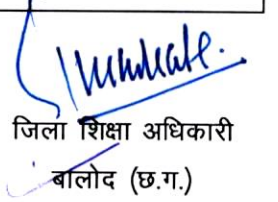 जिला शिक्षा अधिकारी
बालोद (छ.ग.)